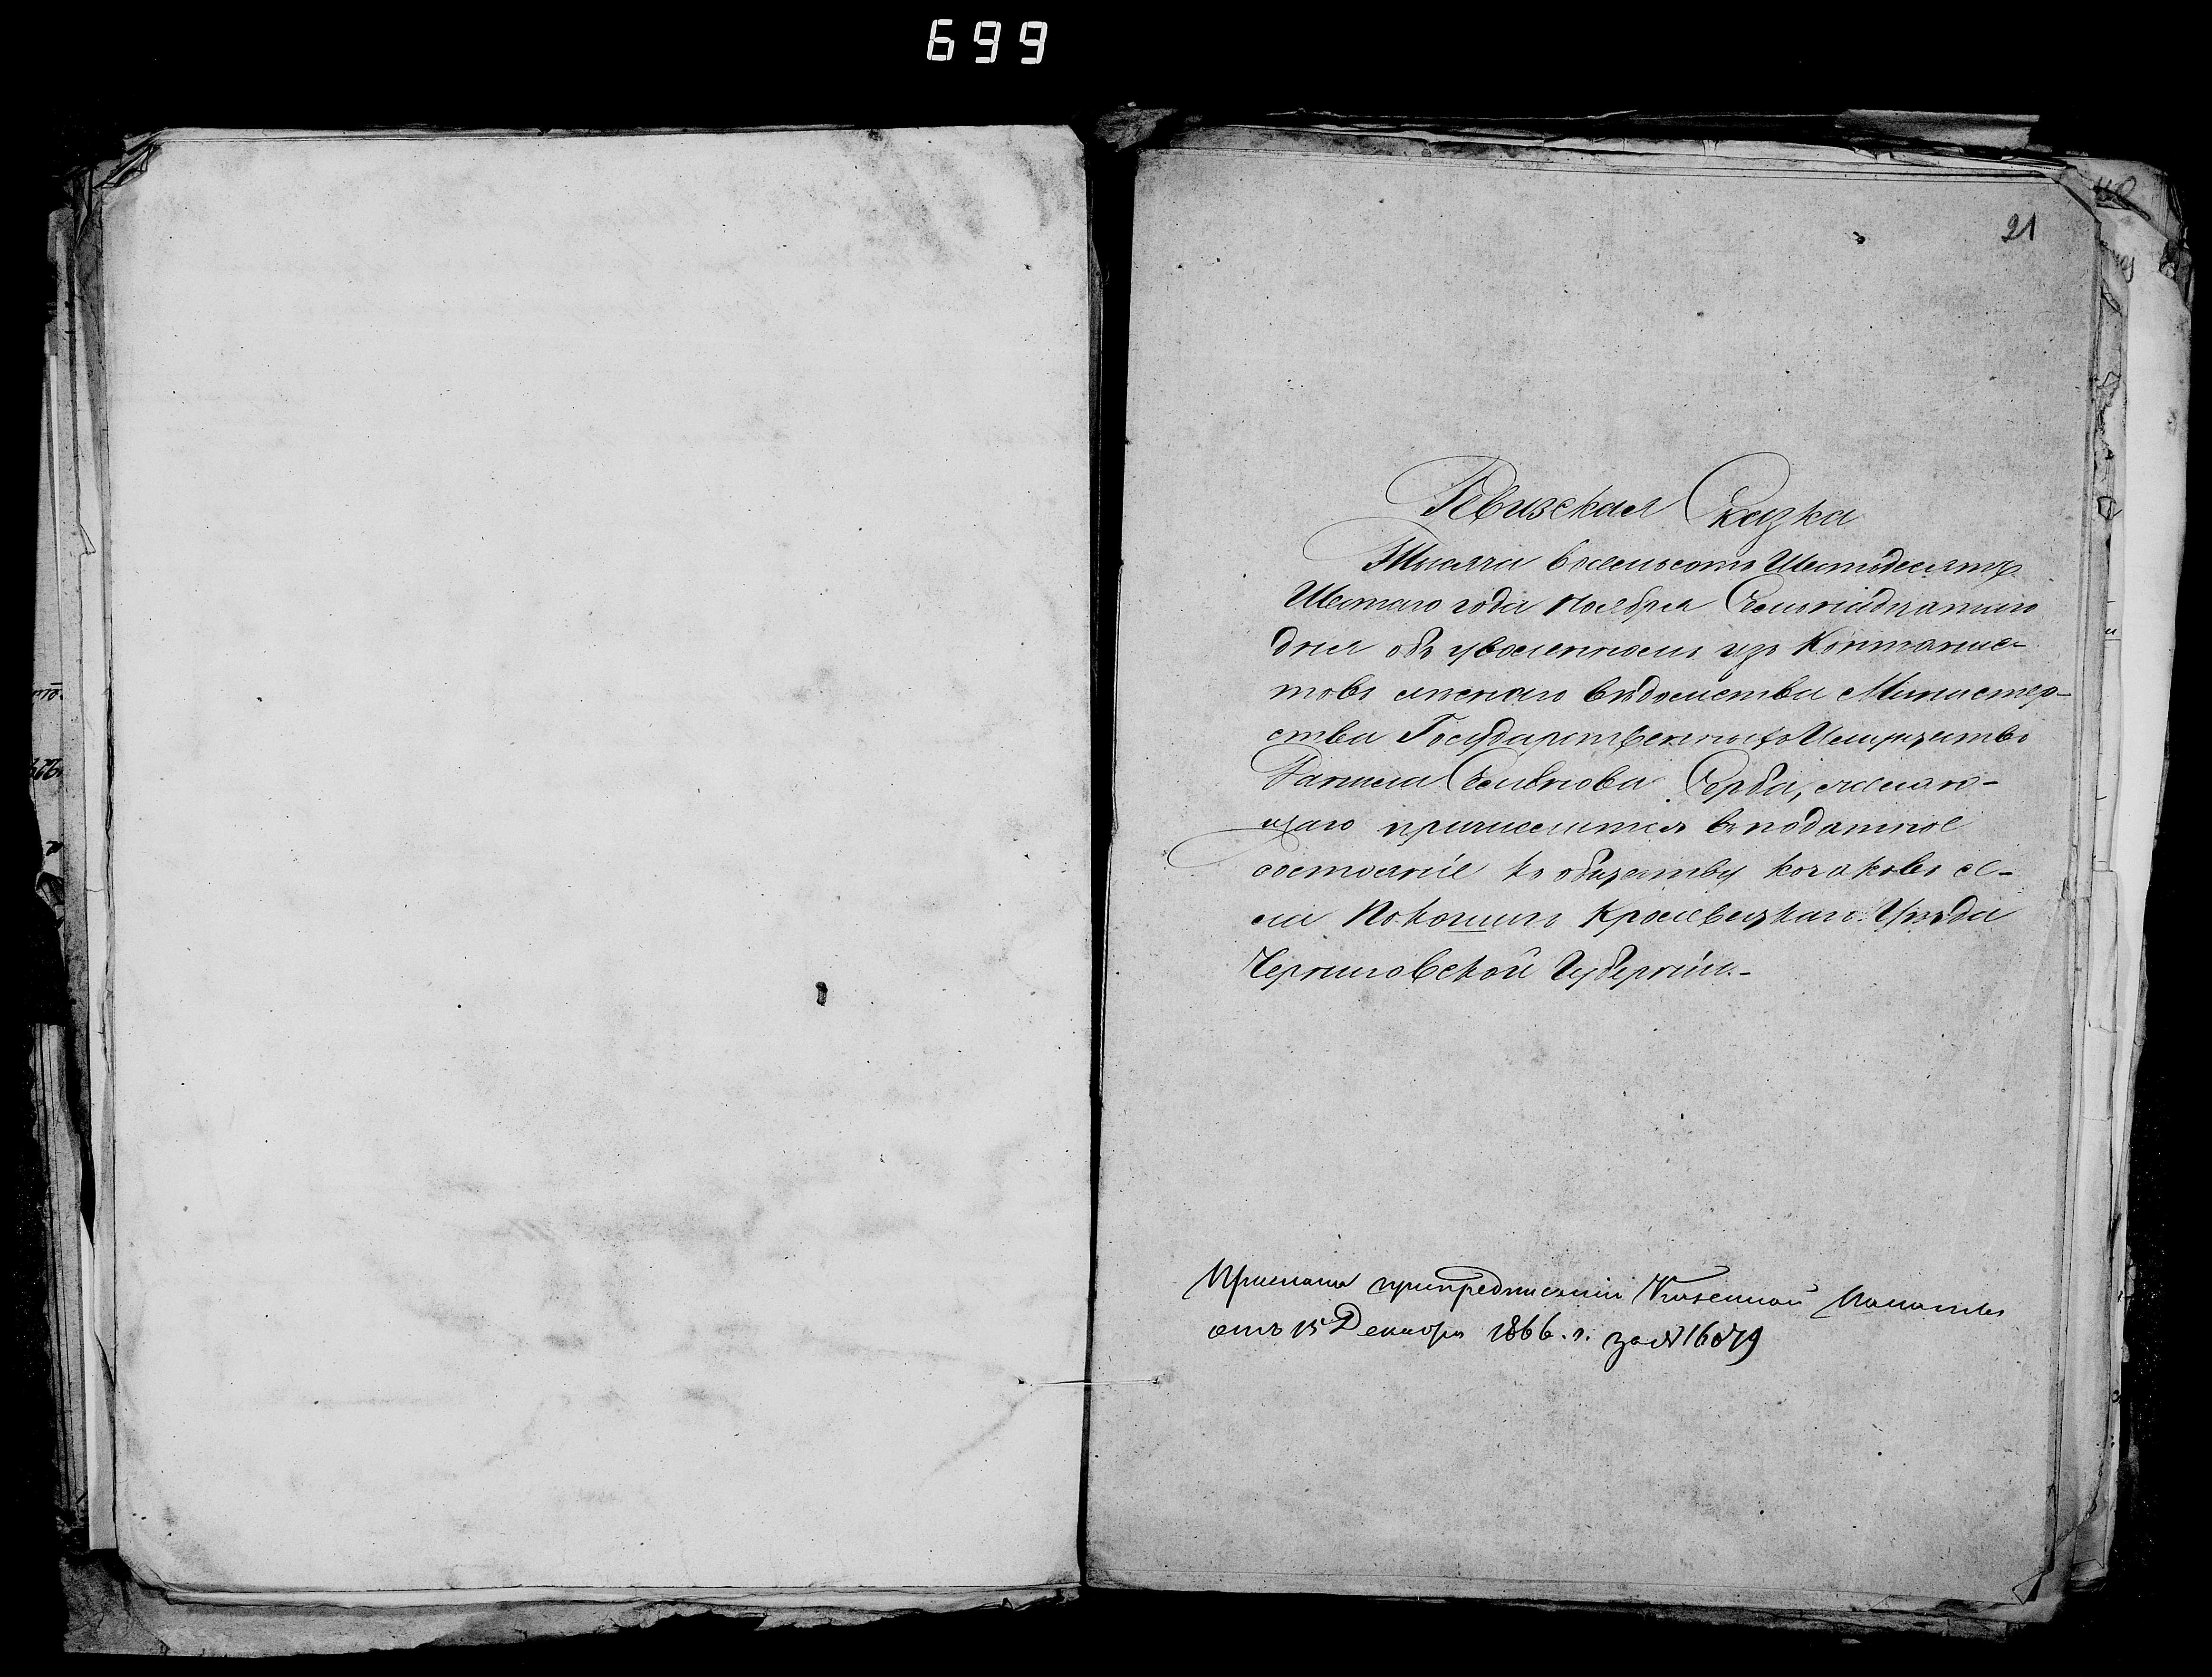 699
21
Ревизская Сказка
Тысяча восемьсотъ Шестьдесятъ
Шестаго года Ноября Семьнадцатаго
дня объ уволенномъ изъ Контонис-
товъ леснаго вѣдомства Министер-
ства Государственныхъ Имуществъ
Данила Семенова Серба, желаю-
щаго причислится въ податное
состояніе къ обществу козаковъ се-
ла Покошичъ Кролевецкаго Уѣзда
Черниговской Губерніи.-
Прислана при предписаніи Казенной Палаты
отъ 15 Декабря 1866. г. за №